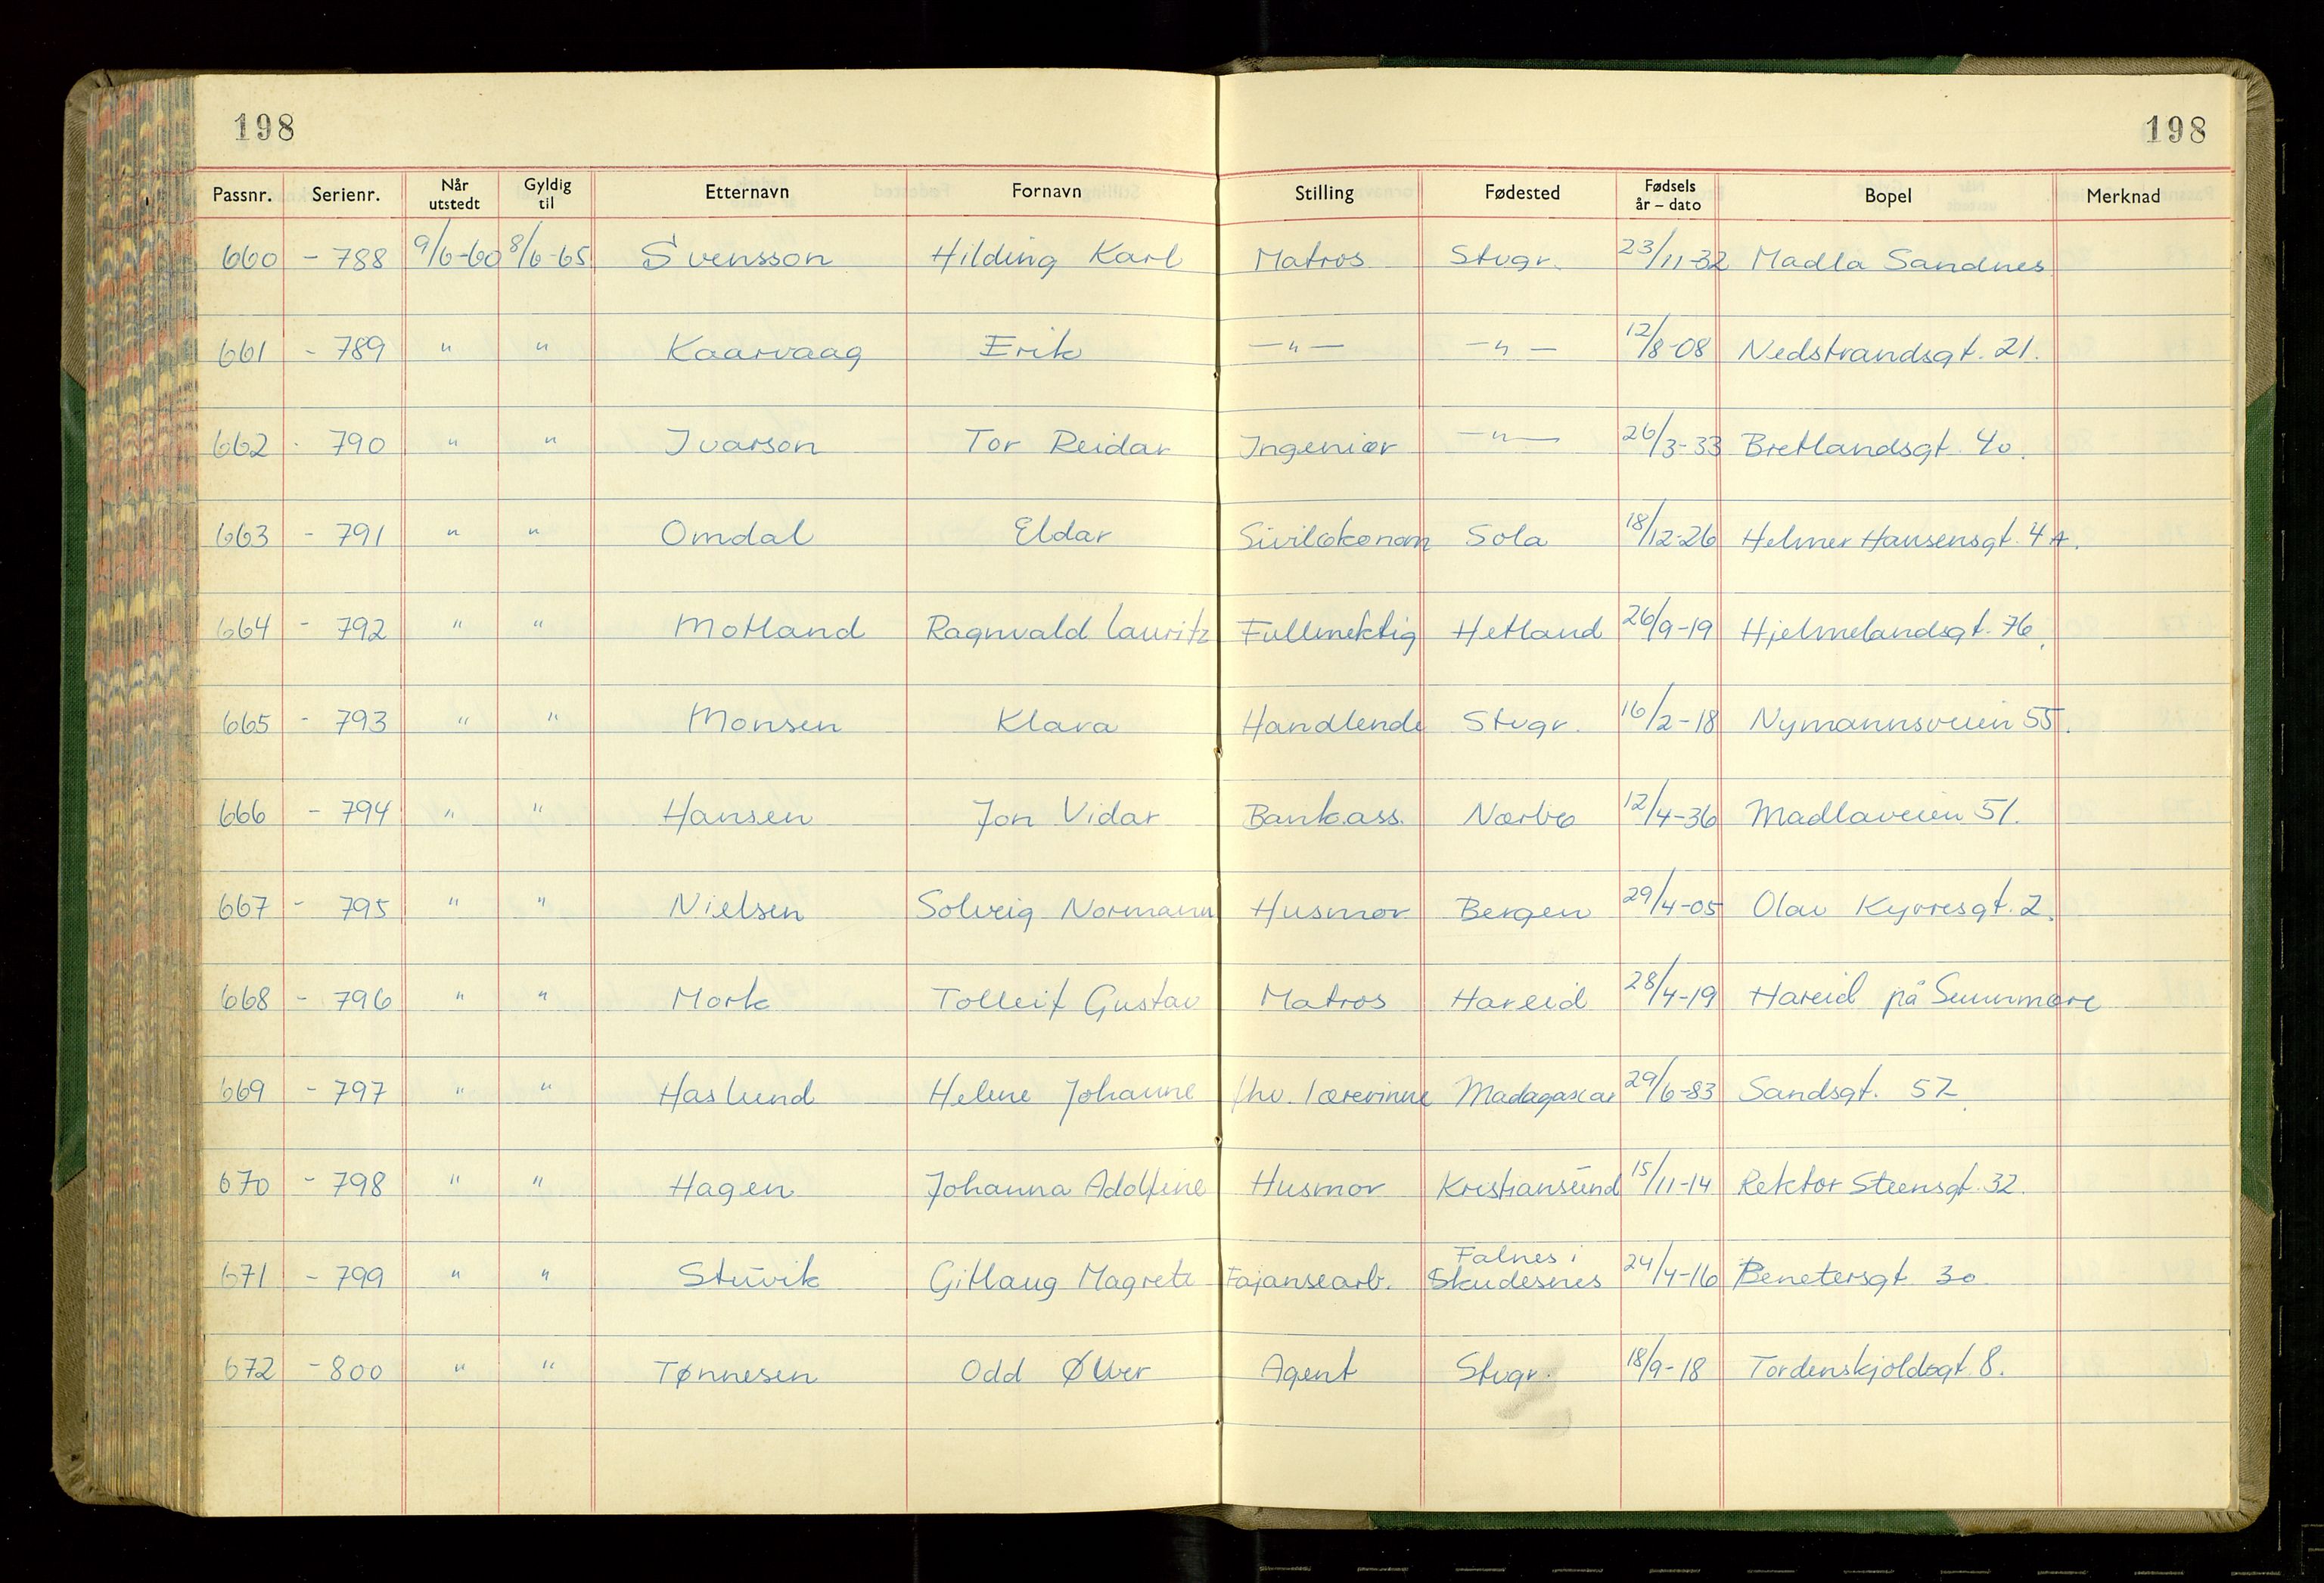 198 198
Passnr. Serienr. Når utstedt Gyldig til Etternavn Fornavn Stilling Fødested Fødsels år – dato Bopel Merknad
660 - 788 9/6-60 8/6-65 Svensson Hilding Karl Matros Stvgr. 23/11-32 Madla Sandnes
661 - 789 " " Kaarvaag Erik —"— —"— 12/8-08 Nedstrandsgt. 21.
662 - 790 " " Ivarson Tor Reidar Ingeniør —"— 26/3-33 Bretlandsgt. 40.
663 - 791 " " Omdal Eldar Siviløkonom Sola 18/12-26 Helmer Hansensgt. 4 A.
664 - 792 " " Motland Ragnvald Lauritz Fullmektig Hetland 26/9-19 Hjelmelandsgt. 76.
665 - 793 " " Monsen Klara Handlende Stvgr. 16/2-18 Nymannsveien 55.
666 - 794 " " Hansen Jon Vidar Bankass. Nærbø 12/4-36 Madlaveien 51.
667 - 795 " " Nielsen Solveig Normann Husmor Bergen 29/4-05 Olav Kyrresgt. 2.
668 - 796 " " Mork Tolleif Gustav Matros Hareid 28/4-19 Hareid på Sunnmøre
669 - 797 " " Haslund Helene Johanne fhv. lærerinne Madagascar 29/6-83 Sandsgt. 52.
670 - 798 " " Hagen Johanna Adolfine Husmor Kristiansund 15/11-14 Rektor Steensgt. 32.
671 - 799 " " Stuvik Gitlaug Magrete Fajansearb. Falnes i Skudesnes 24/4-16 Benetersgt 30
672 - 800 " " Tønnesen Odd Øliver Agent Stvgr. 18/9-18 Tordenskjoldsgt. 8.